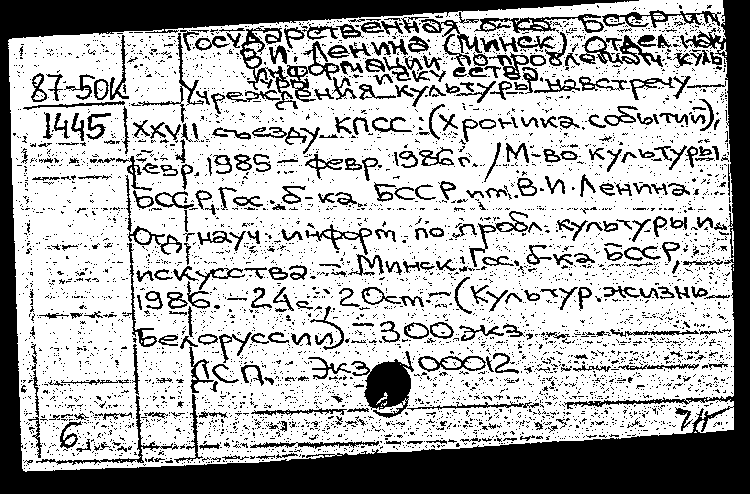 Государственная б-ка БССР им.
В.И. Ленина (Минск). Отдел науч.
информации по проблемам куль
туры и искусства.
87-50К Учреждения культуры навстречу
1445 XXVII съезду КПСС: (Хроника событий),
февр. 1985 – февр. 1986 г. / М-во культуры
БССР, Гос. б-ка БССР им. В.И. Ленина.
Отд. науч. информ. по пробл. культуры и
искусства. – Минск: Гос. б-ка БССР,
1986. – 24 с.; 20 см – (Культур. жизнь
Белоруссии). – 300 экз.
ДСП. Экз. N 00012
6.